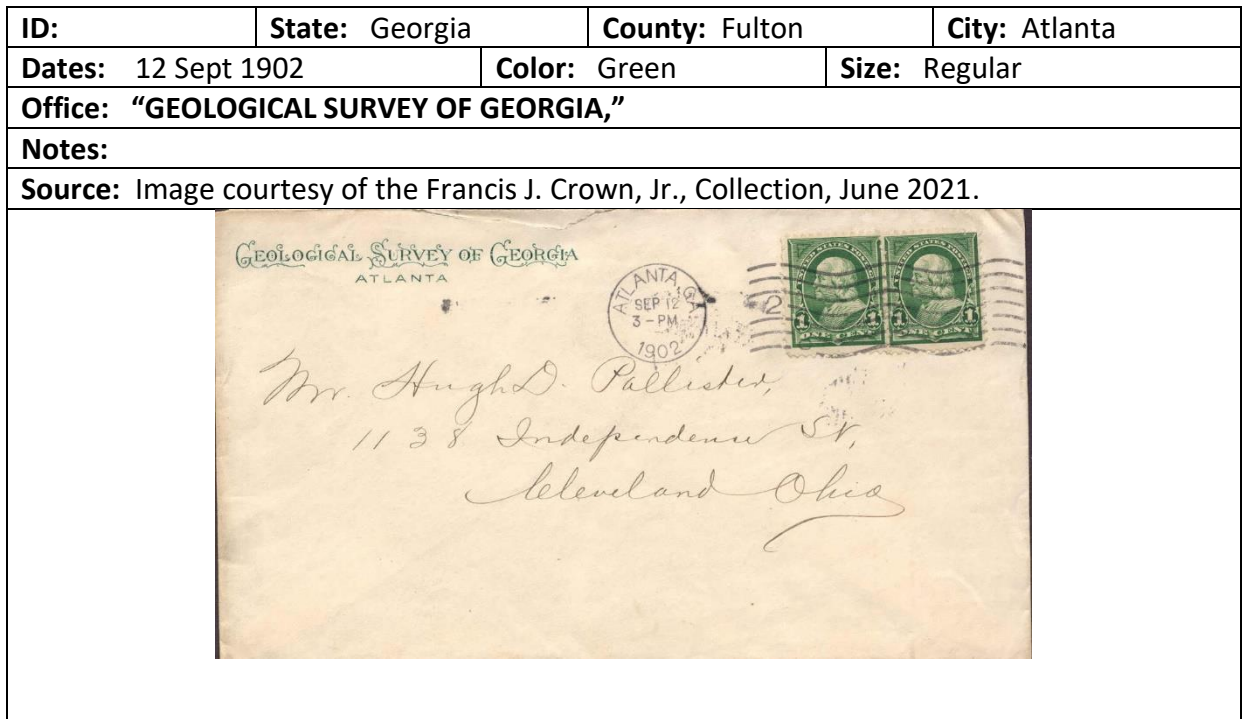 ID: State: Georgia County: Fulton City: Atlanta
Dates: 12 Sept 1902 Color: Green Size: Regular
Office: “GEOLOGICAL SURVEY OF GEORGIA,”
Notes:
Source: Image courtesy of the Francis J. Crown, Jr., Collection, June 2021.
GEOLOGICAL SURVEY OF GEORGIA
ATLANTA
ATLANTA, GA
SEP 12
3-PM
1902
2
UNITED STATES POSTAGE
1 1
ONE CENT
UNITED STATES POSTAGE
1 1
ONE CENT
Mr. Hugh D. Pallister,
1138 Independence St,
Cleveland Ohio